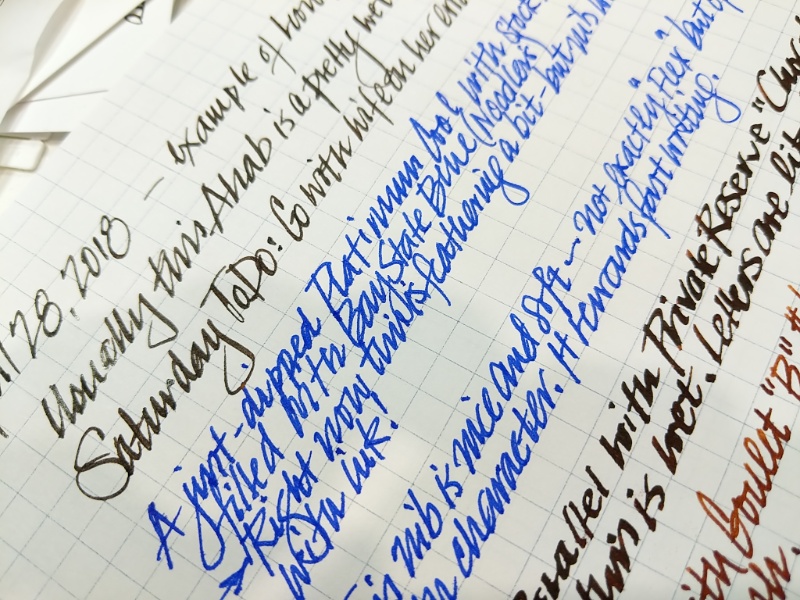 28, 2018 – example of how
Usually this Ahab is a pretty wet
Saturday ToDo: Go with wife on her
A just-dipped Platinum Cool with stock
filled with Bay State Blue (Noodlers)
→ Right now thinks feathering a bit - but nib
with ink.
nib is nice and soft — not exactly "Flex" but
character. It rewards fast writing.
Parallel with Private Reserve "Choc
this is wet. Letters are
with Goulet "B"